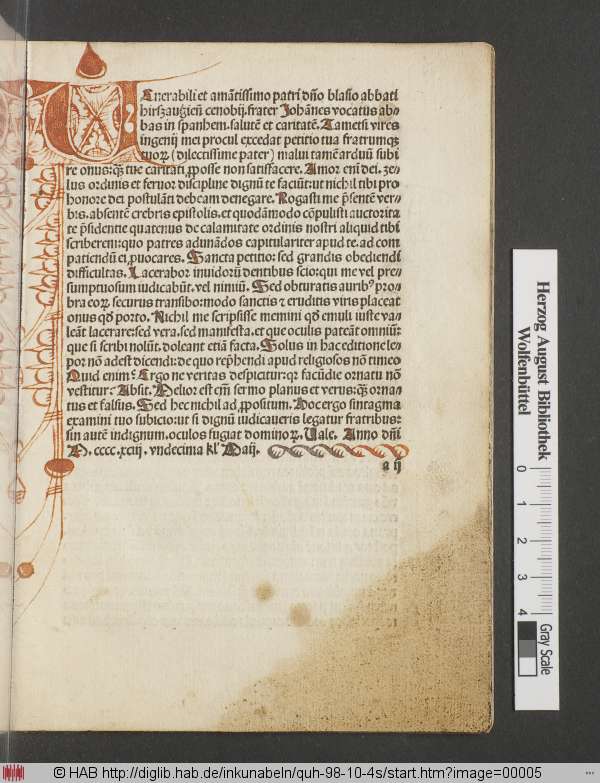 VEnerabili et amãtissimo patri dño blasio abbati
hirszaugieñ cenobij. frater Johãnes vocatus ab⸗
bas in spanhem. salutẽ et caritatẽ. Tametsi vires
ingenij mei procul excedat petitio tua fratrumqꝫ
tuoꝝ (dilectissime pater) malui tamẽ arduũ subi
re onus: qꝫ tue caritati ꝓposse non satisfacere. Amor eni dei. ze⸗
lus ordinis et feruor discipline dignũ te faciũt: ut nichil tibi pro
honore dei postulãti debeam denegare. Rogasti me p̃sentẽ ver⸗
bis. absentẽ crebris epistolis. et quodãmodo cõpulisti auctorita
te p̃sidentie quatenus de calamitate ordinis nostri aliquid tibi
scriberem: quo patres adunãdos capitulariter apud te. ad com
patiendũ ei ꝓuocares. Sancta petitio: sed grandis obediendi
difficultas. Lacerabor inuidoꝝ dentibus scio: qui me vel pre⸗
sumptuosum iudicabũt. vel nimiũ. Sed obturatis auribꝰ pro⸗
bra eoꝝ securus transibo: modo sanctis ⁊ eruditis viris placeat
onus qd̃ porto. Nichil me scripsisse memini qd̃ emuli iuste va⸗
leãt lacerare: sed vera. sed manifesta. et que oculis pateãt omniũ:
que si scribi nolũt. doleant etiã facta. Solus in hac editione le⸗
por nõ adest dicendi: de quo rep̃hendi apud religiosos nõ timeo
Quid enim? Ergo ne veritas despicitur: qꝛ facũdie ornatu nõ
vestitur? Absit. Melior est em̃ sermo planus et verus: qꝫ orna⸗
tus et falsus. Sed hec nichil ad ꝓpositum. Hoc ergo sintagma
examini tuo subicio: ut si dignũ iudicaueris legatur fratribus:
sin autẽ indignum. oculos fugiat dominoꝝ. Vale. Anno dñi
M. cccc. xcij. vndecima kl' Maij.
a ij
Herzog August Bibliothek
Wolfenbüttel
0 1 2 3 4
Gray Scale
© HAB http://diglib.hab.de/inkunabeln/quh-98-10-4s/start.htm?image=00005